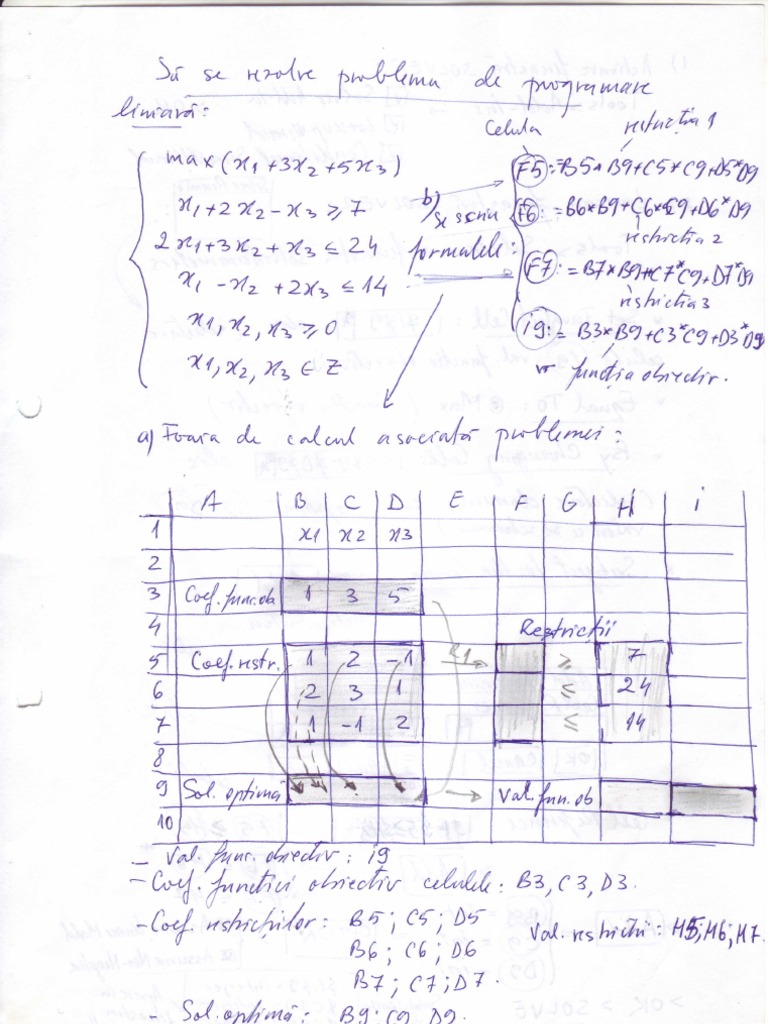 Să se rezolve problema de programare
liniară:
max (x1+3x2+5x3)
x1+2x2-x3 ≥ 7
2x1+3x2+x3 ≤ 24
x1-x2+2x3 ≤ 14
x1, x2, x3 ≥ 0
x1, x2, x3 ∈ Z
b) se scriu
formulele:
Celula restricția 1
F5: =B5*B9+C5*C9+D5*D9
F6: =B6*B9+C6*C9+D6*D9
restricția 2
F7: =B7*B9+C7*C9+D7*D9
restricția 3
i9: = B3*B9+C3*C9+D3*D9
funcția obiectiv.
a) Foaia de calcul asociată problemei:
A B C D E F G H i
1 x1 x2 x3
2
3 Coef. func. ob 1 3 5
4 Restricții
5 Coef. restr. 1 2 -1 R1 ≥ 7
6 2 3 1 ≤ 24
7 1 -1 2 ≤ 14
8
9 Sol. optimă Val. fun. ob
10
- Val. func. obiectiv: i9
- Coef. funcției obiectiv celulele: B3, C3, D3.
- Coef. restricțiilor: B5; C5; D5 Val. restricții: H5; H6; H7.
B6; C6; D6
B7; C7; D7.
- Sol. optimă: B9; C9, D9.